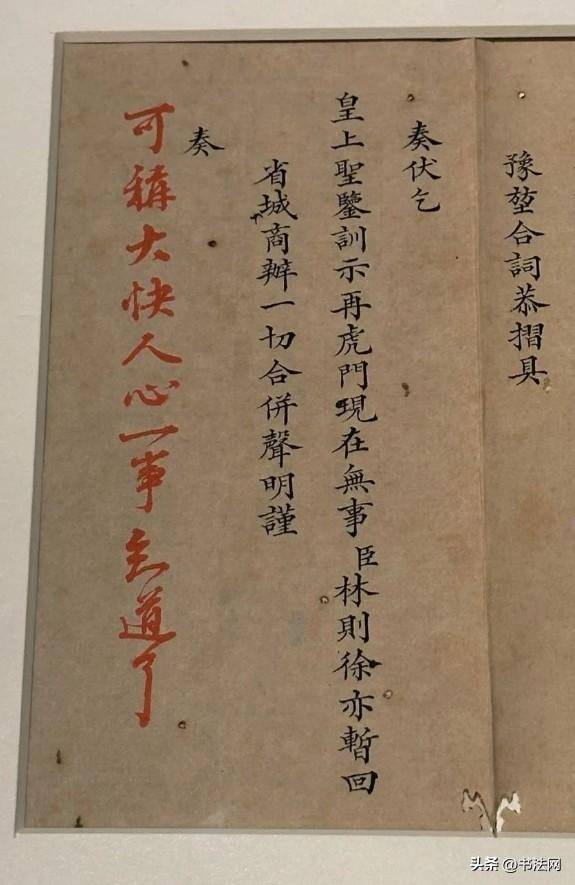 豫堃合詞恭摺具
奏伏乞
皇上聖鑒訓示再虎門現在無事臣林則徐亦暫回
省城商辦一切合併聲明謹
奏
可稱大快人心一事知道了
头条 @书法网